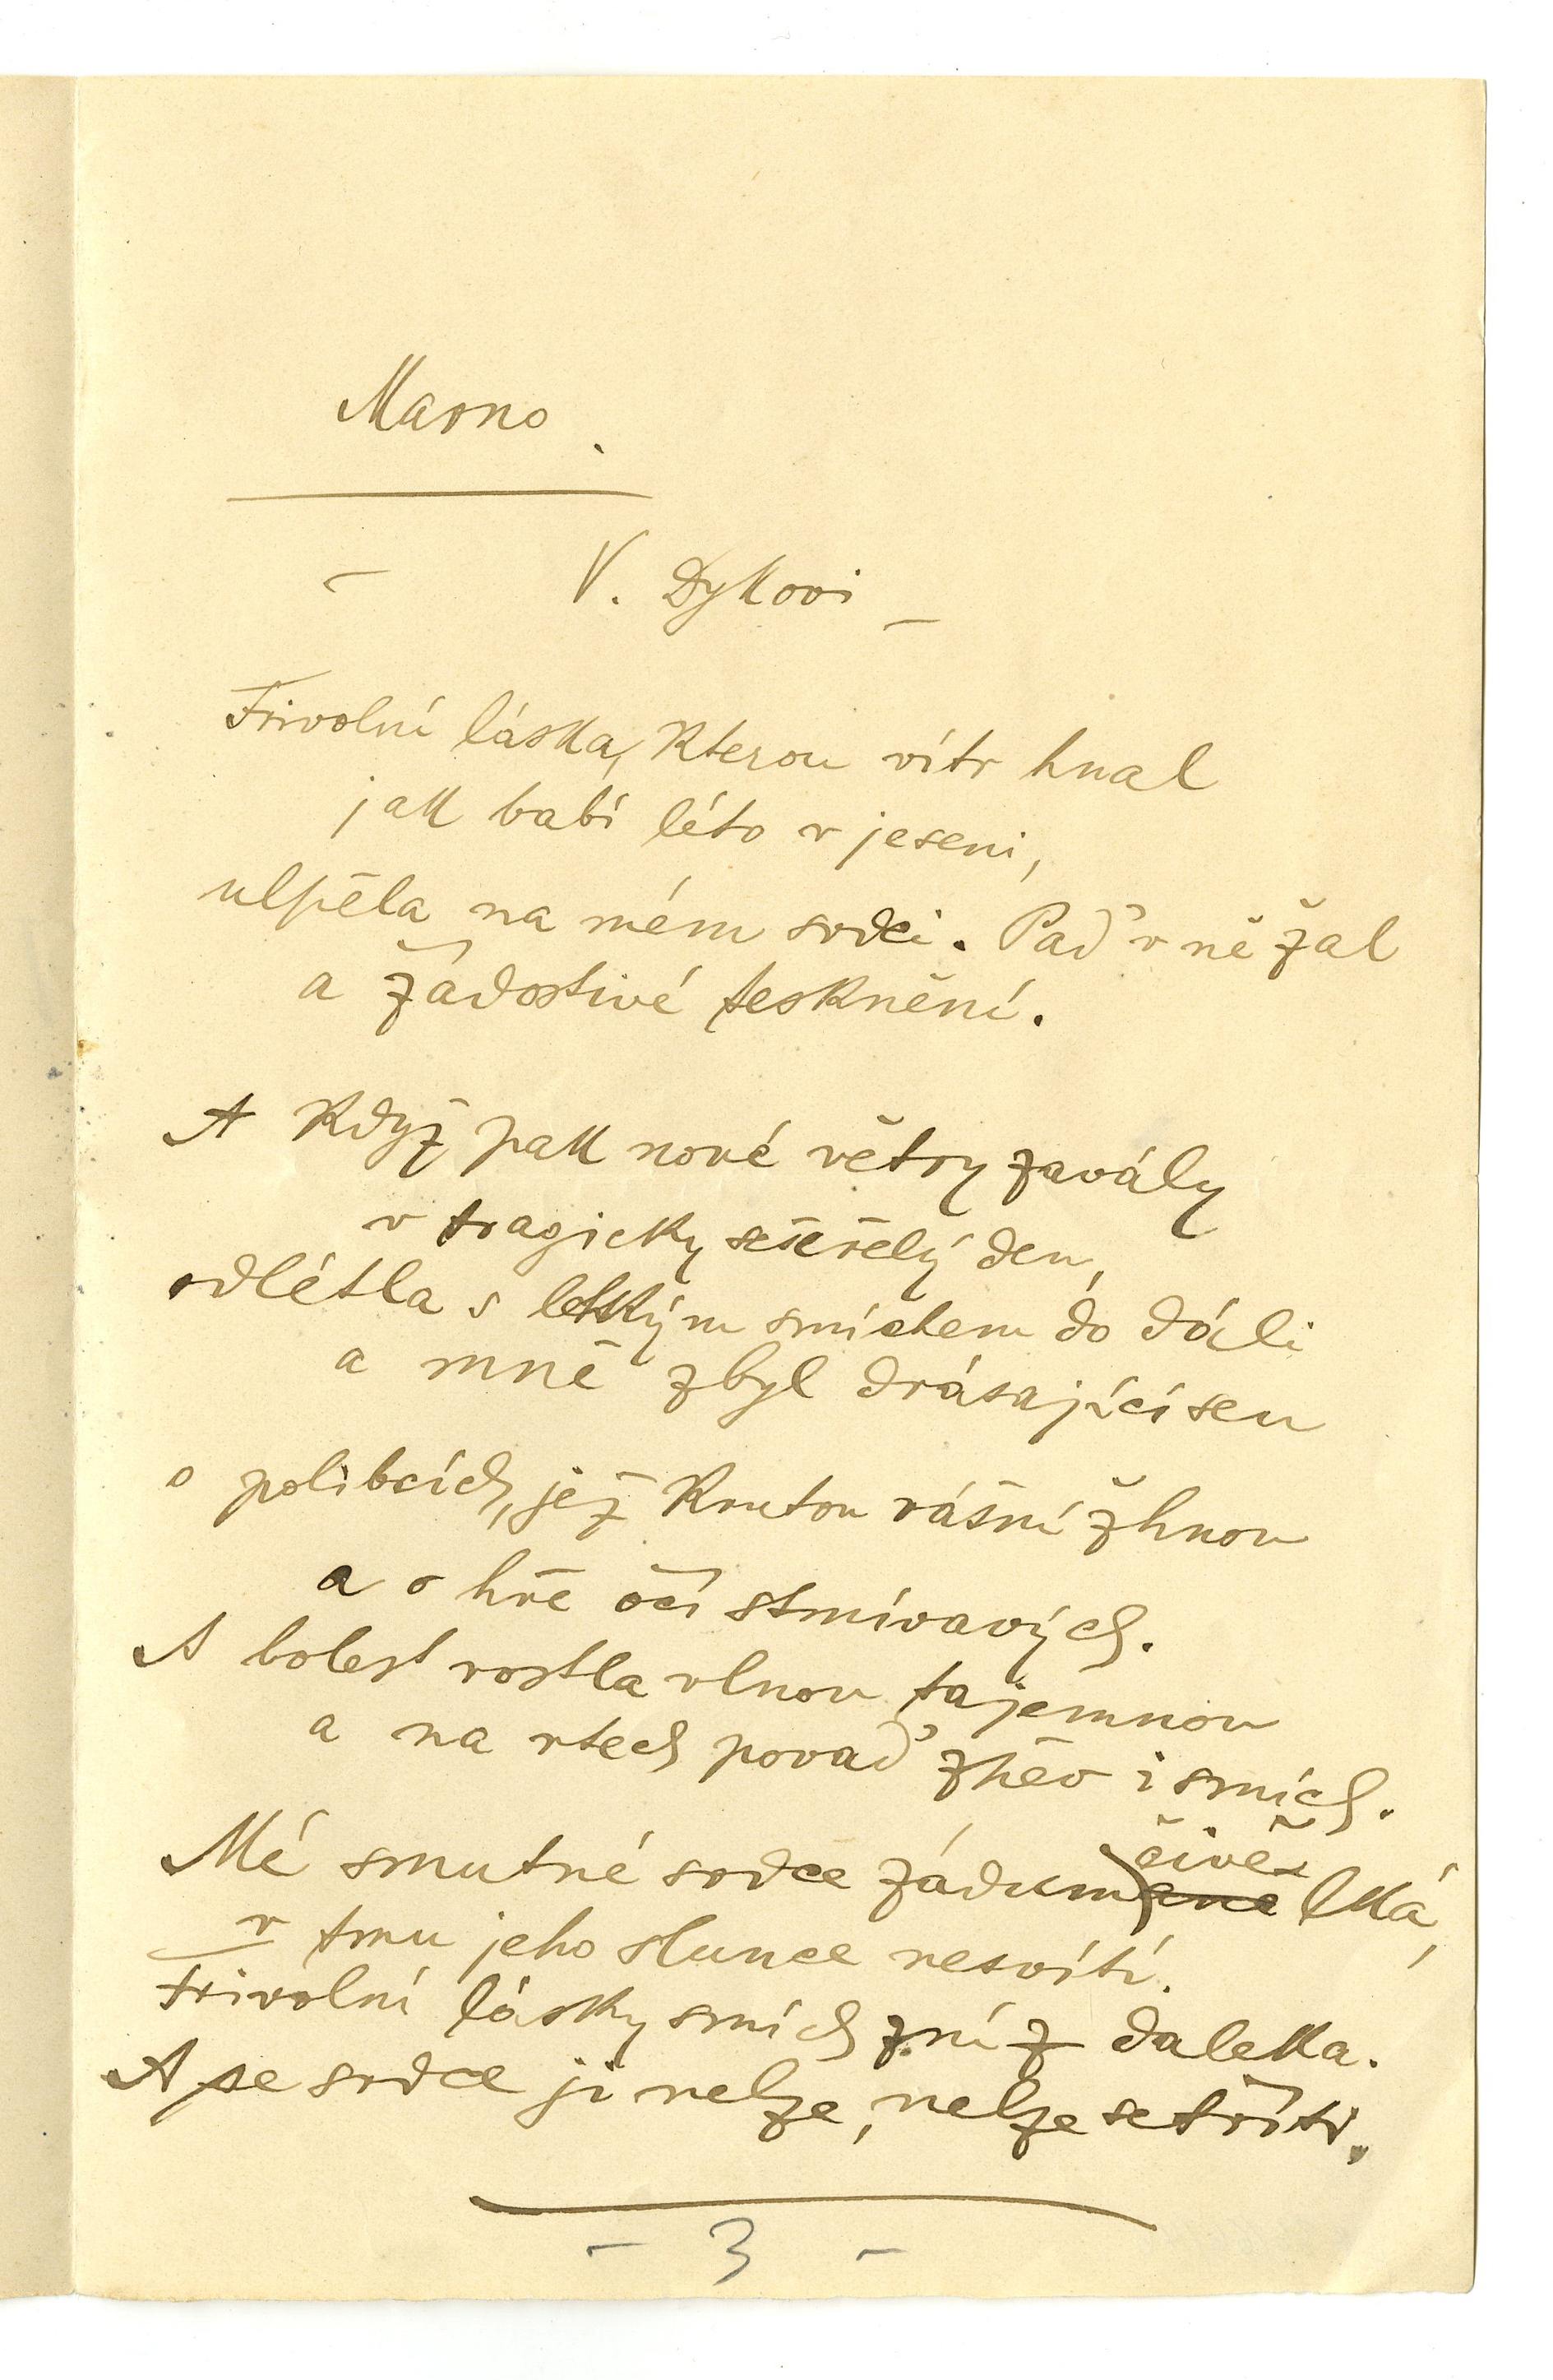 Marno.
– V. Dykovi –
Frivolní láska, kterou vítr hnal
jak babí léto v jeseni,
ulpěla na mém srdci. Pad' v ně žal
a žádostivé tesknění.
A když pak nové větry zavály
v tragicky sešeřelý den,
odlétla s lehkým smíchem do dáli
a mně zbyl drásající sen
o polibcích, jež krutou vášní žhnou
a o hře očí stmívavých.
A bolest rostla vlnou tajemnou
a na rtech povad' zpěv i smích.
čivě
Mé smutné srdce zádumaně lká,
v tmu jeho slunce nesvítí.
Frivolní lásky smích zní z daleka.
A se srdce ji nelze, nelze setříti.
– 3 –